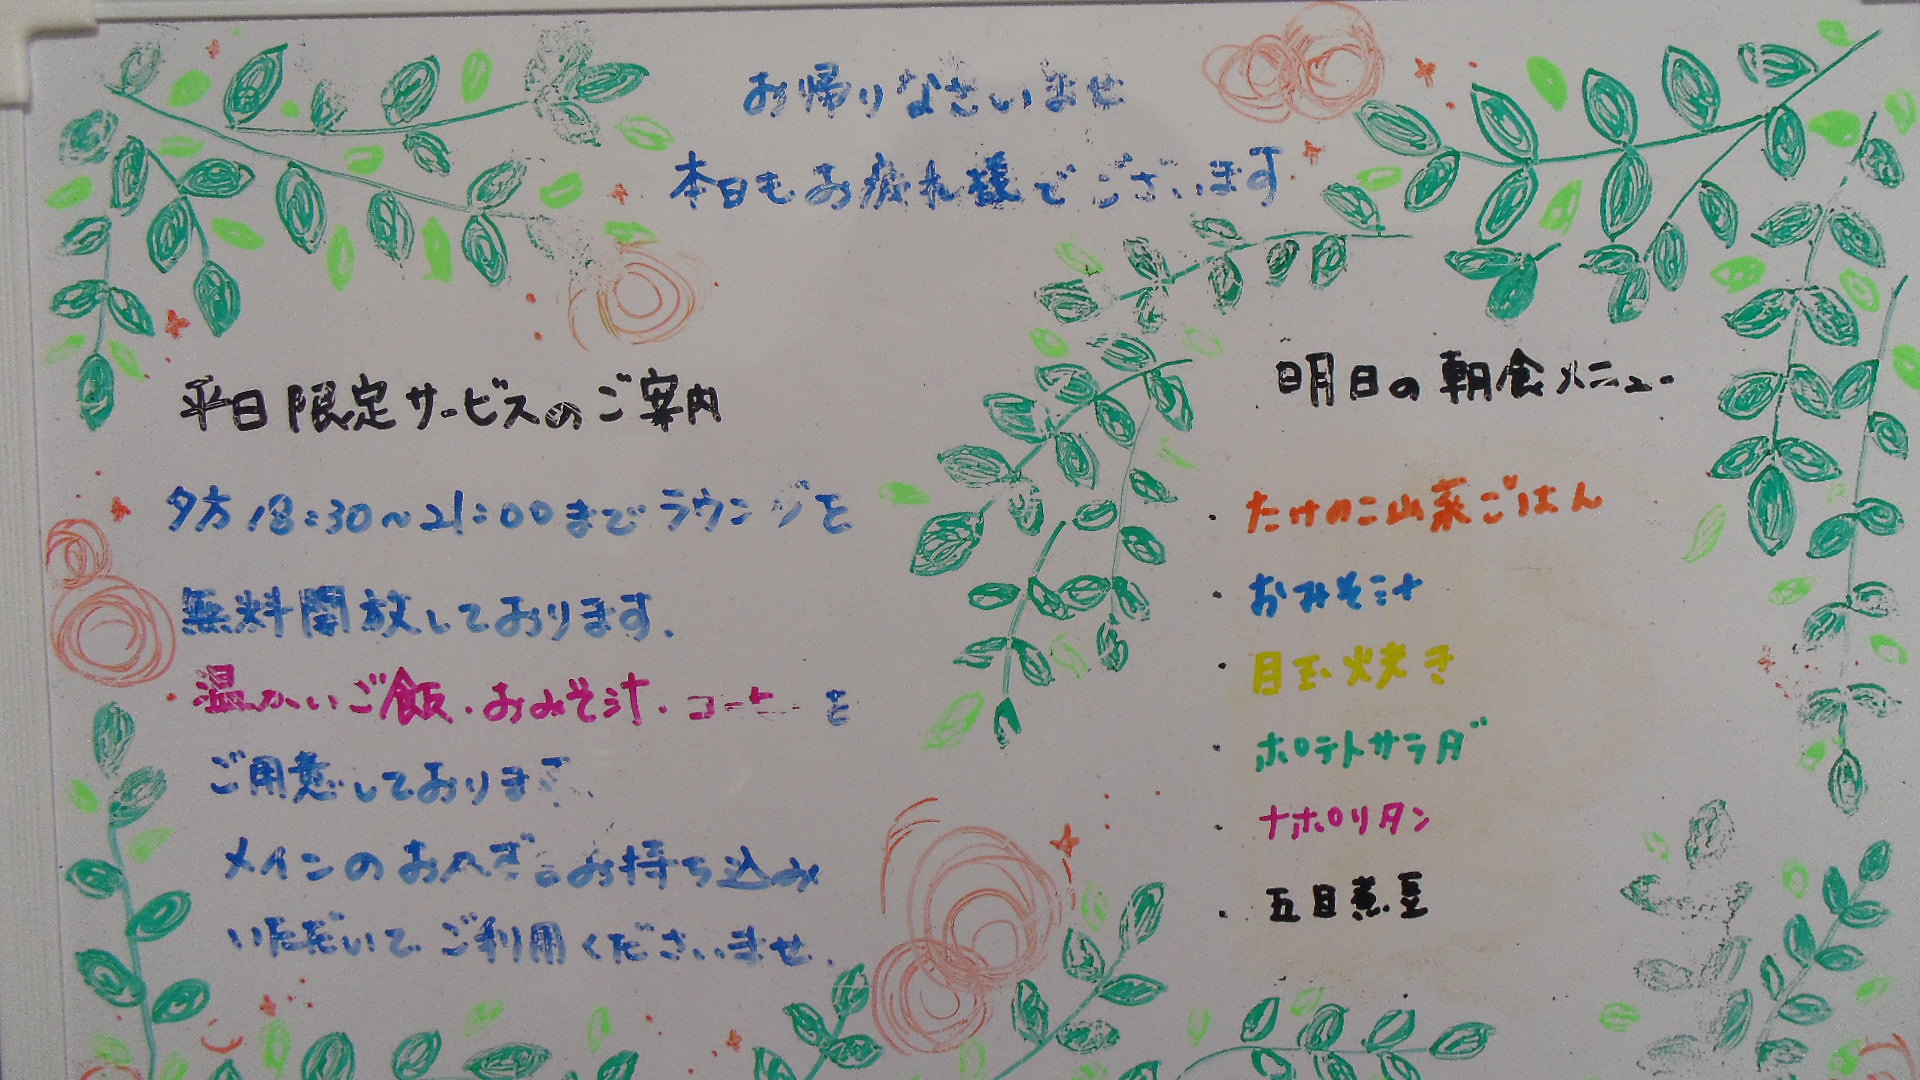 お帰りなさいませ
本日もお疲れ様でございます
平日限定サービスのご案内
夕方18:30~21:00までラウンジを
無料開放しております.
・温かいご飯・おみそ汁・コーヒーを
ご用意しております
メインのおかずをお持ち込み
いただいて ご利用くださいませ.
明日の朝食メニュー
・たけのこ山菜ごはん
・おみそ汁
・目玉焼き
・ポテトサラダ
・ナポリタン
・五目煮豆